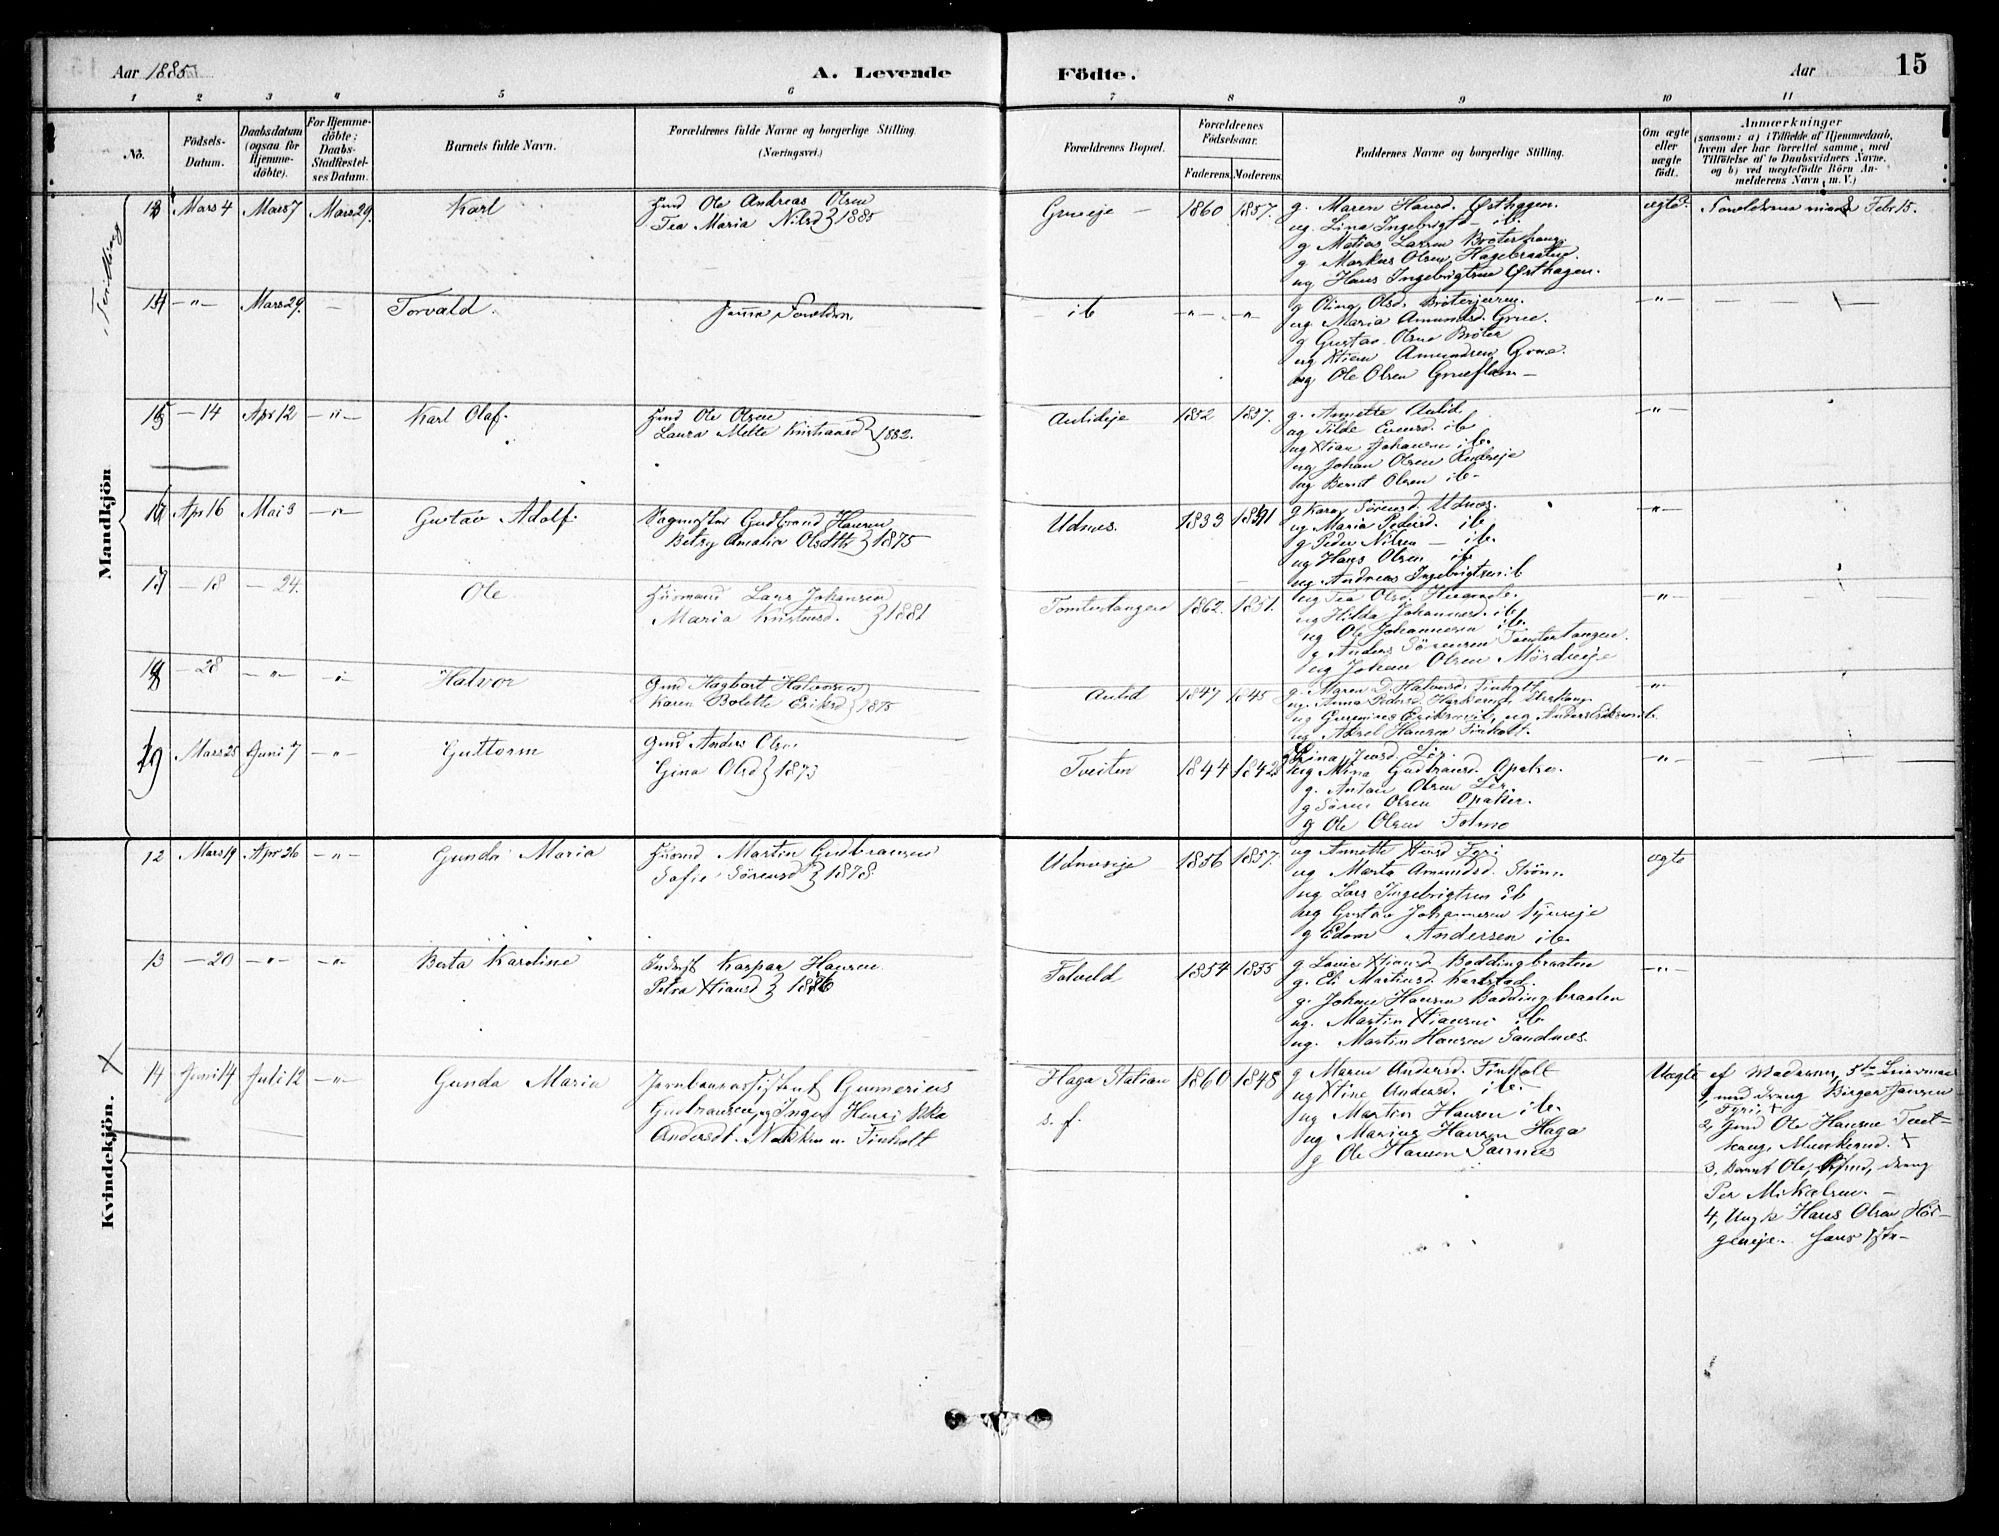 Aar 1885
A. Levende
Födte.
Aar
15
1 2 3 4 5 6 7 8 9 10 11
No.
Födsels-
Datum.
Daabsdatum
(ogsaa for
Hjemme-
döbte).
For Hjemme-
döbte;
Daabs-
Stadfæstel-
ses Datum.
Barnets fulde Navn.
Forældrenes fulde Navne og borgerlige Stilling.
(Næringsvei.)
Forældrenes Bopæl.
Forældrenes
Födselsaar.
Faderens.
Moderens.
Faddernes Navne og borgerlige Stilling.
Om ægte
eller
uægte
födt.
Anmærkninger
(saasom: a) i Tilfælde af Hjemmedaab,
hvem der har forrettet samme, med
Tilföielse af to Daabsvidners Navne,
og b) ved uægtefödte Börn An-
melderens Navn, m. V.)
Mandkjön
13 Mars 4 Mars 7 Mars 29. Karl
Ole Andreas Olsen
Tea Maria Nilsd } 1885
Grueeje – 1860 1857.
g. Maren Hansd. Østhagen.
ug. Lina Ingebrigts – ib.
g Matias Larsen
g. Markus Olsen Hagebraaten
ug Hans Ingebrigtsen Østhagen.
ægte Febr 15.
14 –"– Mars 29. – Torvald.
– ib –"– –"–
g Olina Olsd.
ug. Maria Amundsd. Grue.
g Gustav Olsen Bröter
ug Xtian Amundsen Grue.
ug Ole Olsen
–"–
15 –14 Apr 12 –"– Karl Olaf.
Ole Olsen
Laura Mette Kristiansd } 1882.
Aulideje 1852 1857.
g. Annette Aulid
ug Tilde Evensd. ib
ug Xtian Johansen ib.
ug Johan Olsen
ug Bernt Olsen ib –
–"–
16 Apr 16 Mai 3 –"– Gustav Adolf.
Gudbrand Hansen
Betzy Amalia } 1875
Udnes. 1833
g Karen Sörensd. Udnes.
ug Maria Pedersd. ib
g Peder Nilsen – ib.
ug Hans Olsen ib
ug Andreas Ingebrigtsen ib
–"–
17 –18 –24. Ole
Husmand Lars Johansen
Maria Kristensd. } 1881
Tomtertangen 1862. 1851.
ug Tea Olsd.
ug Hilda Johannesd. ib
ug Ole Johannesen ib.
g Anders Sörensen Tomtertangen.
ug Johan Olsen
–"–
18 –28 –"– –"– Halvor
Gmd Hagbart Halvorsen
Karen Bolette Eriksd } 1875
Aulid 1847 1845
g. Maren D. Halvorsd. Finholt
ug. Anna Pedersd.
ug Gunerius Eriksen ib, ug Anders Eriksen ib.
ug Axsel Hansen Finholt.
–"–
19 Mars 25 Juni 7 –"– Guttorm
Gmd Anders Olsen
Gina Olsd } 1873
Tveiten 1844 1842
Lina Jensd. Lör.
ug Mina Gudbransd. Opaker.
g. Anton Olsen Lör.
g Sören Olsen Opaker.
g Ole Olsen Tolmo
–"–
Kvindekjön.
12 Mars 19 Apr 26 –"– Gunda Maria
Husmd Martin Gudbransen
Sofie Sörensd } 1878.
Udneseje 1856 1857.
ug Annette Fyri
ug Marta Amundsd. Ström
ug Lars Ingebrigtsen ib
ug Gustav Johannesen
g Edom Andersen ib.
ægte
13 –20 –"– –"– Berta Karoline
Kaspar Hansen
Petra Xtiansd } 1876
Folveld 1854 1855
g Lovise Xtiansd Boddingbraaten
g. Eli Martinsd. Karlstad.
g. Johan Hansen Boddingbraaten
ug. Martin Xtiansen ib
ug. Martin Hansen Sandnes.
–"–
14 Juni 14 Juli 12 –"– Gunda Maria
Jernbaneassistent Gunerius
Gudbransen, og Inger Henrikka
Andersdt. Finholt
Haga Station
s. f.
1860 1848
g Maren Andersd. Finholt
ug Xtine Andersd. ib.
ug Martin Hansen ib.
ug Marius Hansen Haga
g Ole Hansen Sannes
Uægte af Moderen, 5te
1, med dreng Birger Jansen
Fyri, x
2, Gmd Ole Hansen
3, Barnet Ole,
Per Mikalsen. –
4, Ungk Hans Olsen